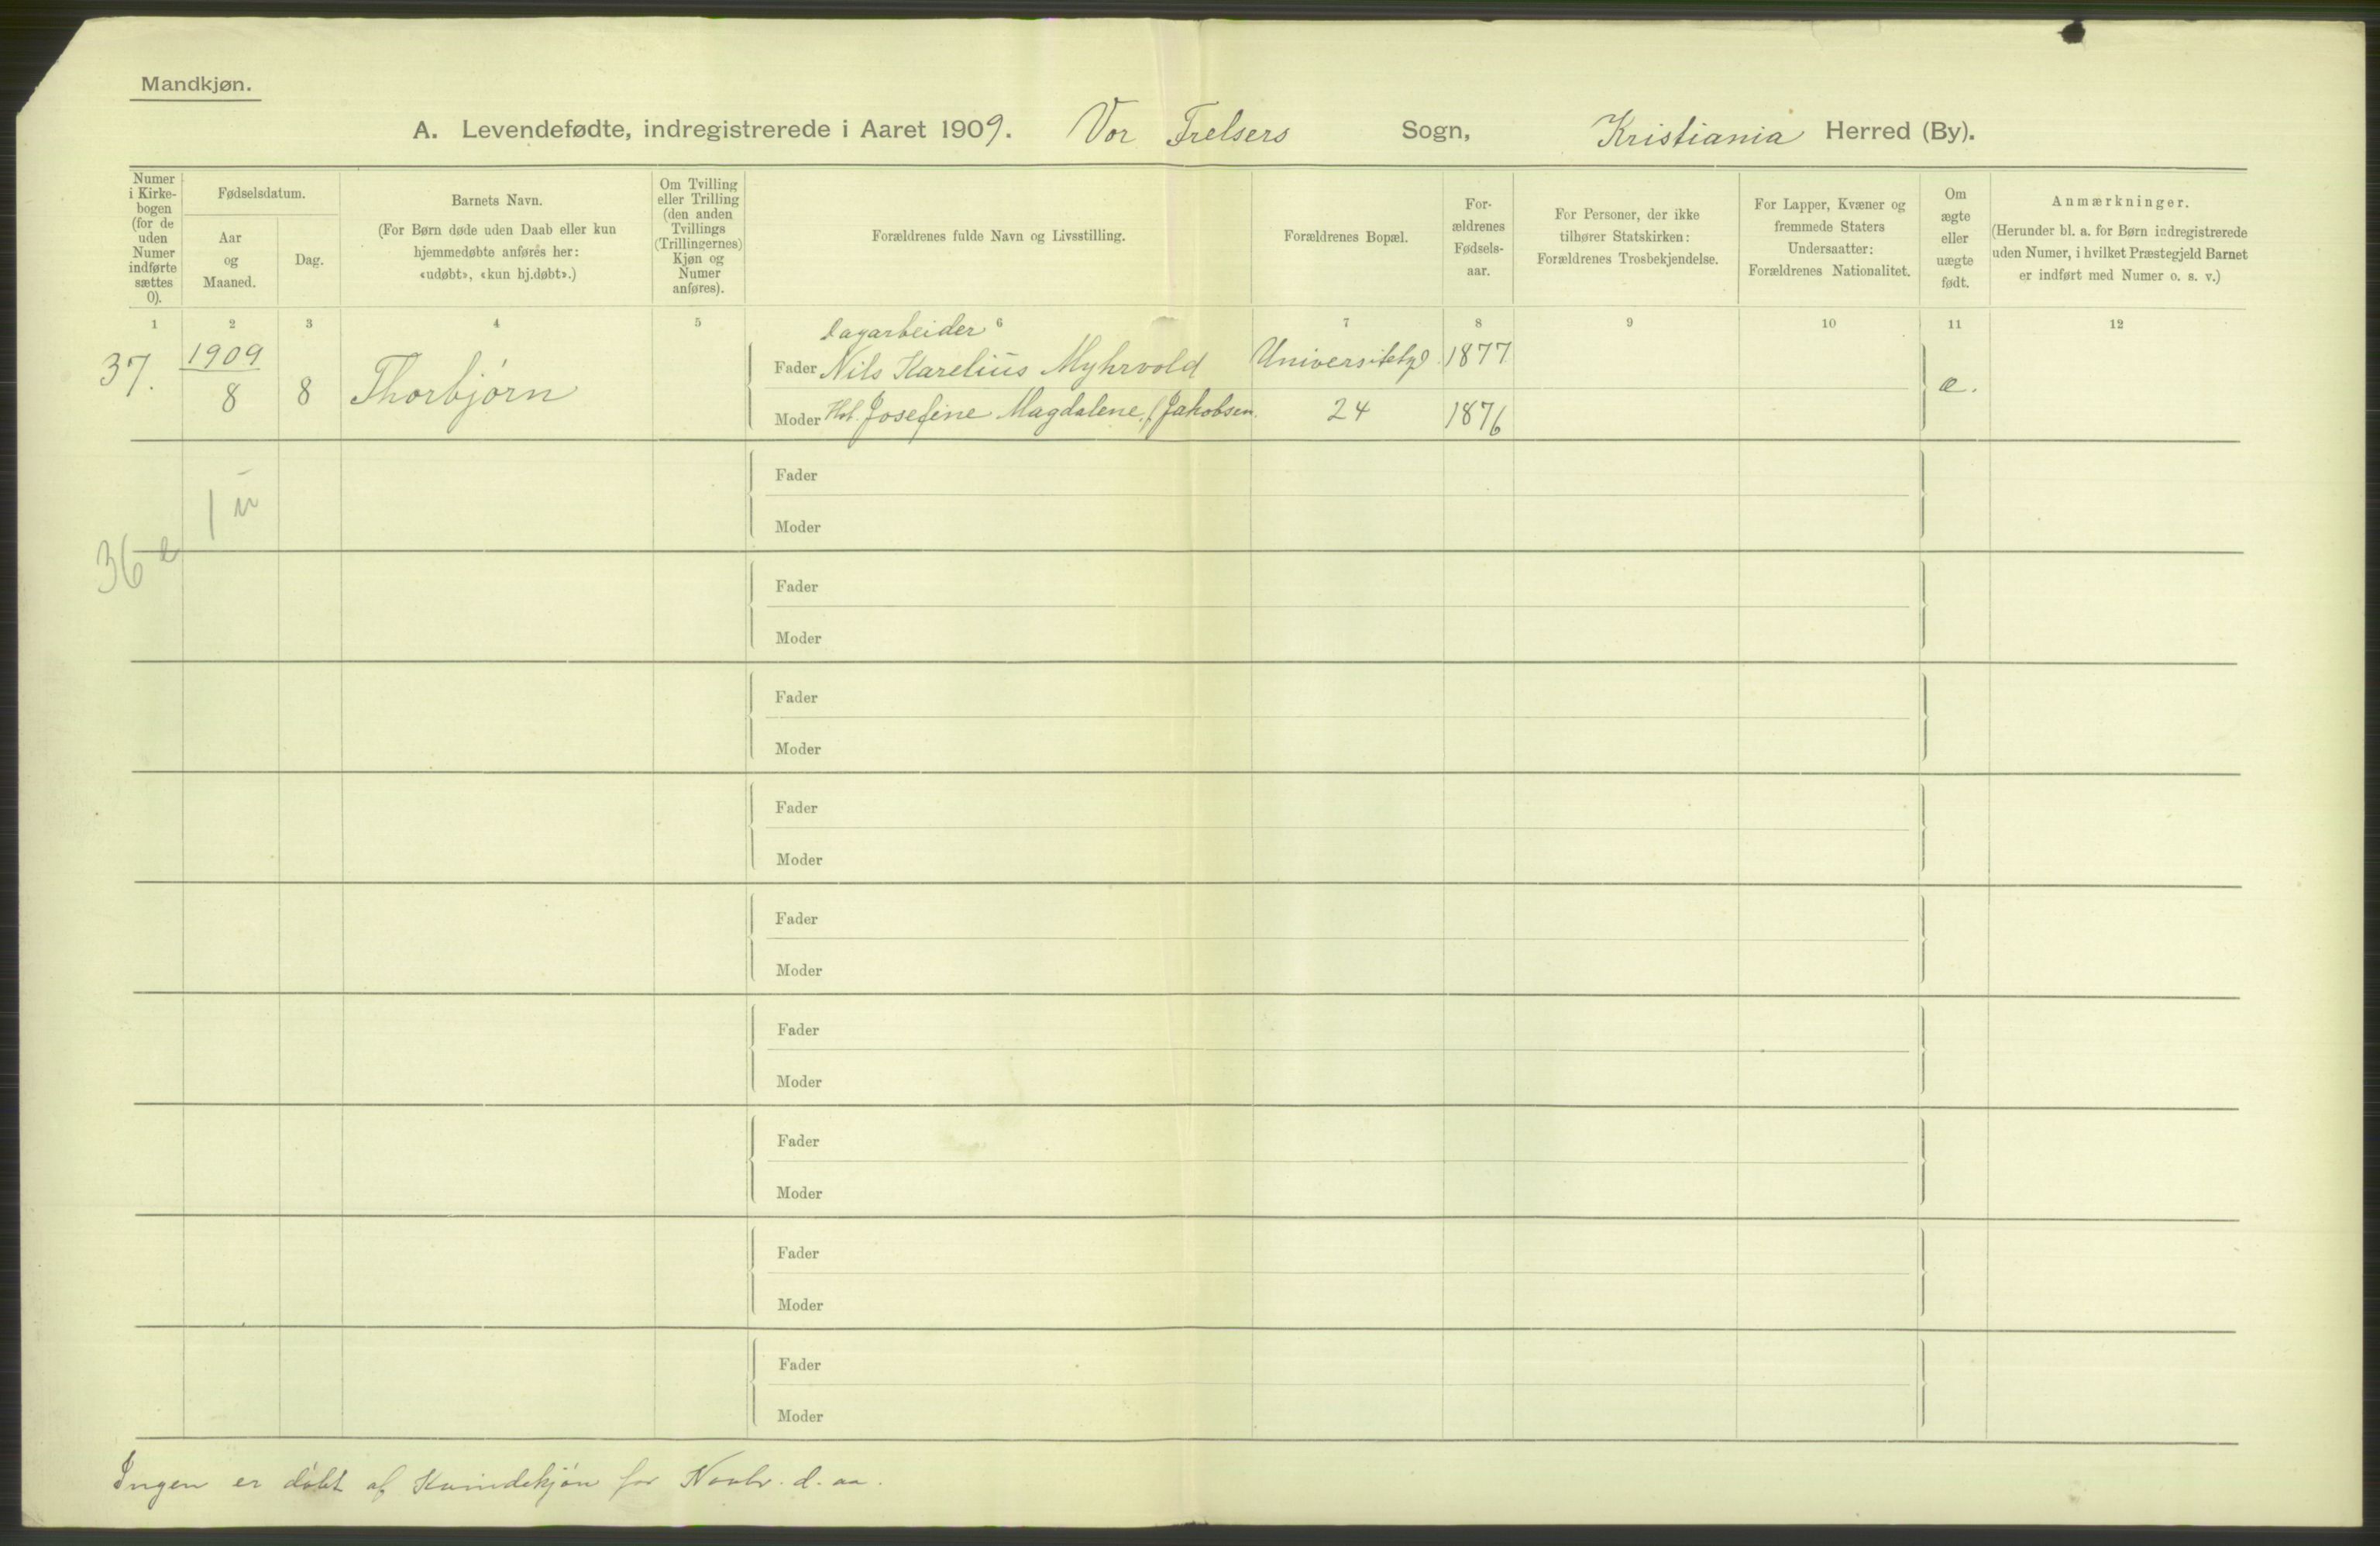 Mandkjøn.
A. Levendefødte, indregistrerede i Aaret 1909. Vor Frelsers Sogn, Kristiania Herred (By).
Numer i Kirkebogen (for de uden Numer indførte sættes 0).
Fødselsdatum.
Aar og Maaned.
Dag.
Barnets Navn.
(For Børn døde uden Daab eller kun
hjemmedøbte anføres her:
«udøbt», «kun hj.døbt».)
Om Tvilling
eller Trilling
(den anden
Tvillings
(Trillingernes)
Kjøn og
Numer
anføres).
Forældrenes fulde Navn og Livsstilling.
Forældrenes Bopæl.
For-
ældrenes
Fødsels-
aar.
For Personer, der ikke
tilhører Statskirken:
Forældrenes Trosbekjendelse.
For Lapper, Kvæner og
fremmede Staters
Undersaatter:
Forældrenes Nationalitet.
Om
ægte
eller
uægte
født.
Anmærkninger.
(Herunder bl. a. for Børn indregistrerede
uden Numer, i hvilket Præstegjeld Barnet
er indført med Numer o. s. v.)
1 2 3 4 5 6 7 8 9 10 11 12
37. 1909 8 8 Thorbjørn
Dagarbeider
Fader Nils Karelius Myhrvold Universitetsgd. 1877
Moder Hst. Josefine Magdalene f. Jakobsen. 24 1876
æ.
Fader
1 u
Moder
36 e
Fader
Moder
Fader
Moder
Fader
Moder
Fader
Moder
Fader
Moder
Fader
Moder
Fader
Moder
Fader
Moder
Ingen er døbt af Kvindekjøn for Novbr. d. aa.